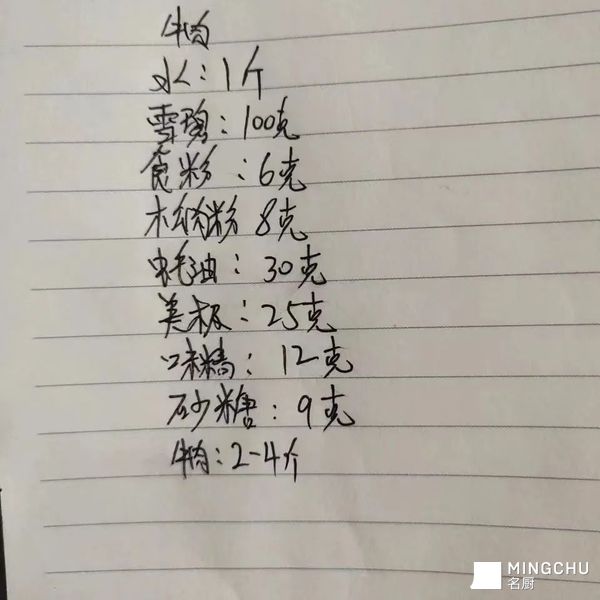 牛肉
水：1斤
雪碧：100克
食粉：6克
松肉粉 8克
蚝油：30克
美极：25克
味精：12克
砂糖：9克
牛肉：2-4斤
MINGCHU
名厨